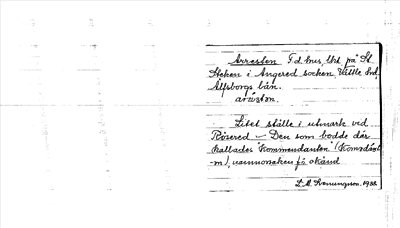 Arresten F d hus, lht på St.
Steken i Angered socken, Vättle hd
Älfsborgs län.
arǎsten.
Litet ställe i utmark vid
Rösered — Den som bodde där
kallades "Kommendanten" (Komədánt
-n), namnorsaken fö okänd
1938.